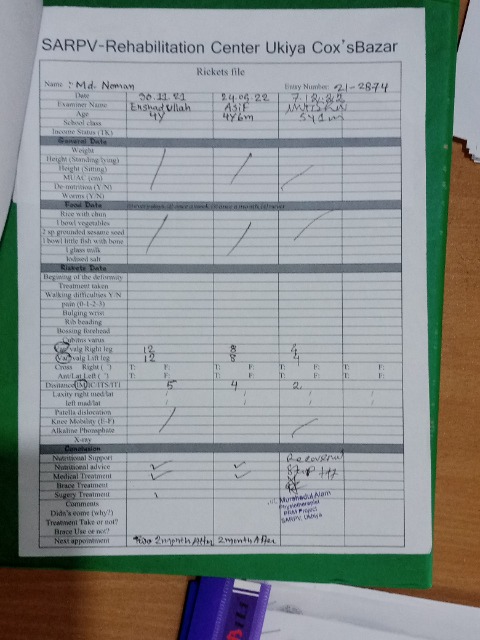 SARPV-Rehabilitation Center Ukiya Cox'sBazar
Rickets file
Name : Md. Noman Entry Number: 21-2874
Date 30.11.21 24.05.22
Examiner Name Enshad Ullah Asif
Age 4Y 4Y6m 5Y1m
School class
Income Status (TK)
General Data
Weight
Height (Standing/lying)
Height (Sitting)
MUAC (cm)
De-nutrition (Y/N)
Worms (Y/N)
Food Data
Rice with chun
1 bowl vegetables
2 sp grounded sesame seed
1 bowl little fish with bone
1 glass milk
Iodised salt
Rickets Data
Begining of the deformity
Treatment taken
Walking difficulties Y/N
pain (0-1-2-3)
Bulging wrist
Rib beading
Bossing forehead
Cubitus varus
Var/valg Right leg 12 8 4
Var/valg Left leg 12 8 4
Cross Right (°) T: F: T: F: T: F: T: F:
Ant/Lat Left (°) T: F: T: F: T: F: T: F:
Distance IMC/ITS/ITI 5 4 2
Laxity right med/lat / / / /
left med/lat / / / /
Patella dislocation
Knee Mobility (E-F)
Alkaline Phosphate
X-ray
Conclusion
Nutritional Support
Nutritional advice
Medical Treatment
Brace Treatment
Sugery Treatment
Comments
Didn's come (why?)
Treatment Take or not?
Brace Use or not?
Next appointment 2month After 2month After
Murshadul Alam
Physiotherapist
SARPV, Ukhiya